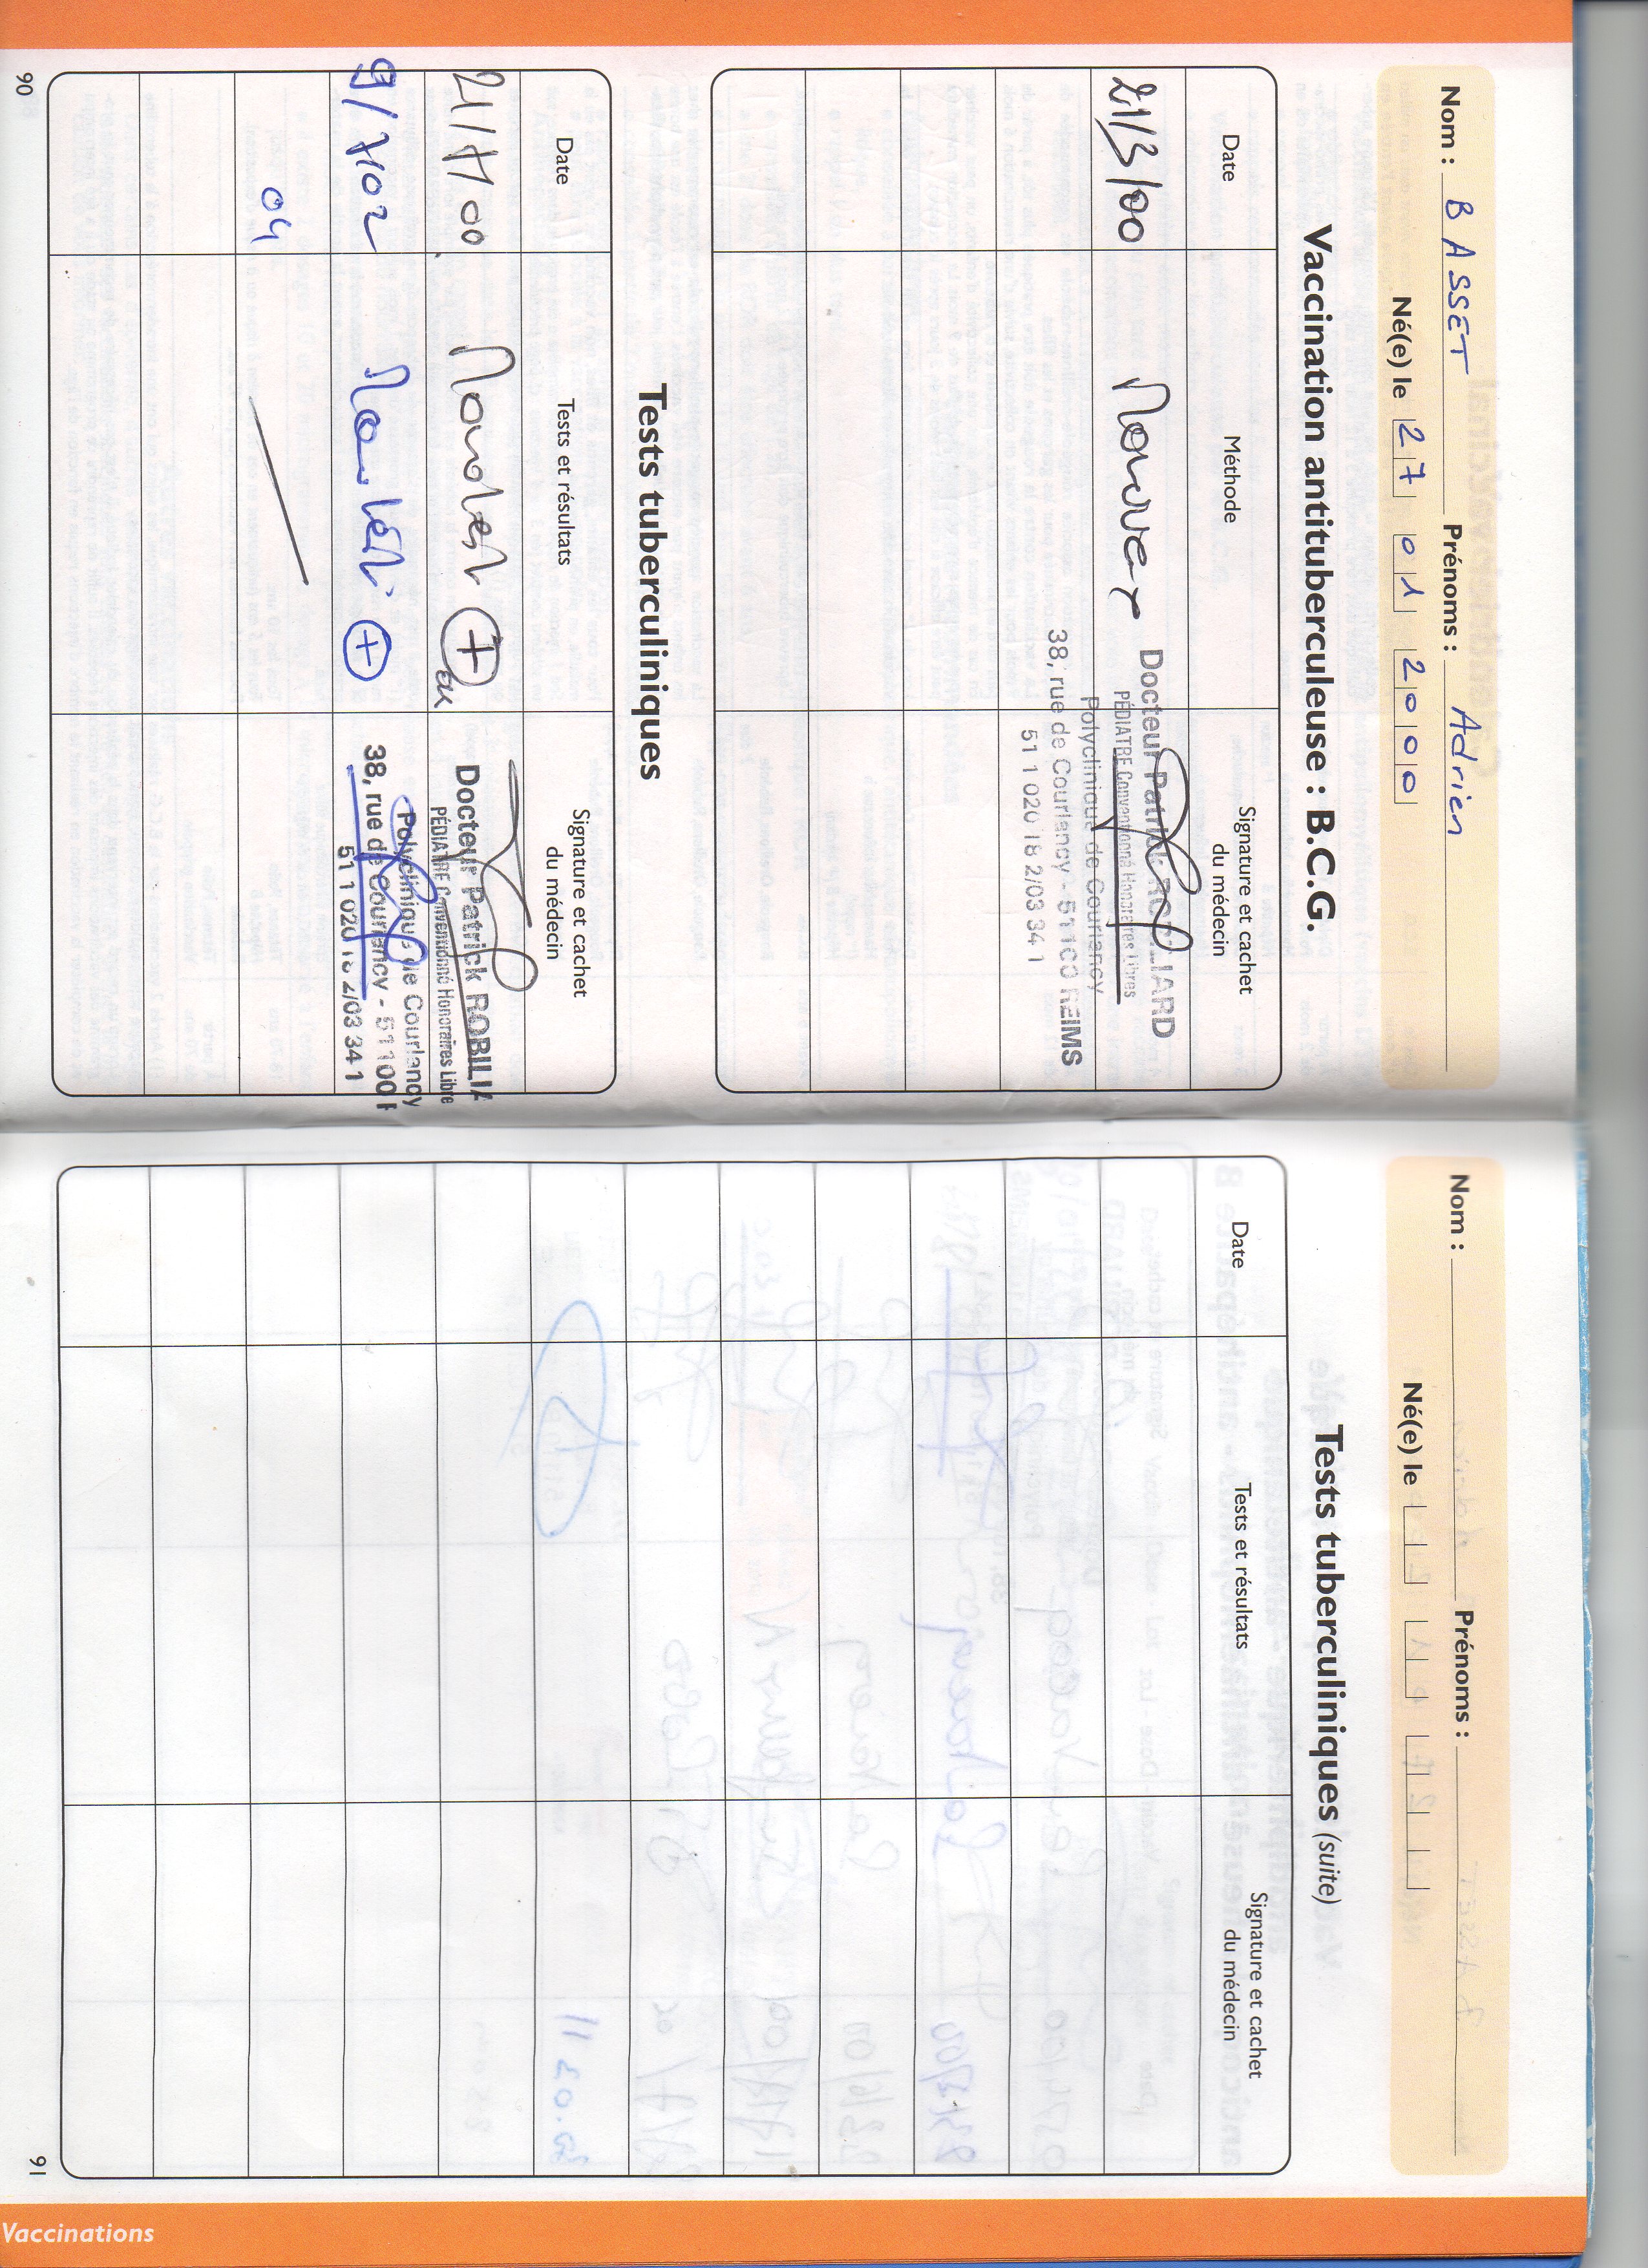 Nom : BASSET Prénoms : Adrien
Né(e) le 27 01 2000
Vaccination antituberculeuse : B.C.G.
Date Méthode Signature et cachet du médecin
21/3/00 Monovax
Docteur Patrick ROBILIARD
PÉDIATRE Conventionné Honoraires Libres
Polyclinique de Courlancy
38, rue de Courlancy - 51100 REIMS
51 1 020 18 2/03 34 1
Tests tuberculiniques
Date Tests et résultats Signature et cachet du médecin
21/7/00 Monotest +
Docteur Patrick ROBILIA
PÉDIATRE Conventionné Honoraires Libre
9/7/02 Monotest +
Polyclinique de Courlancy
38, rue de Courlancy - 51100 R
51 1 020 18 2/03 34 1
04
90
Nom : Prénoms :
Né(e) le
Tests tuberculiniques (suite)
Date Tests et résultats Signature et cachet du médecin
91
Vaccinations